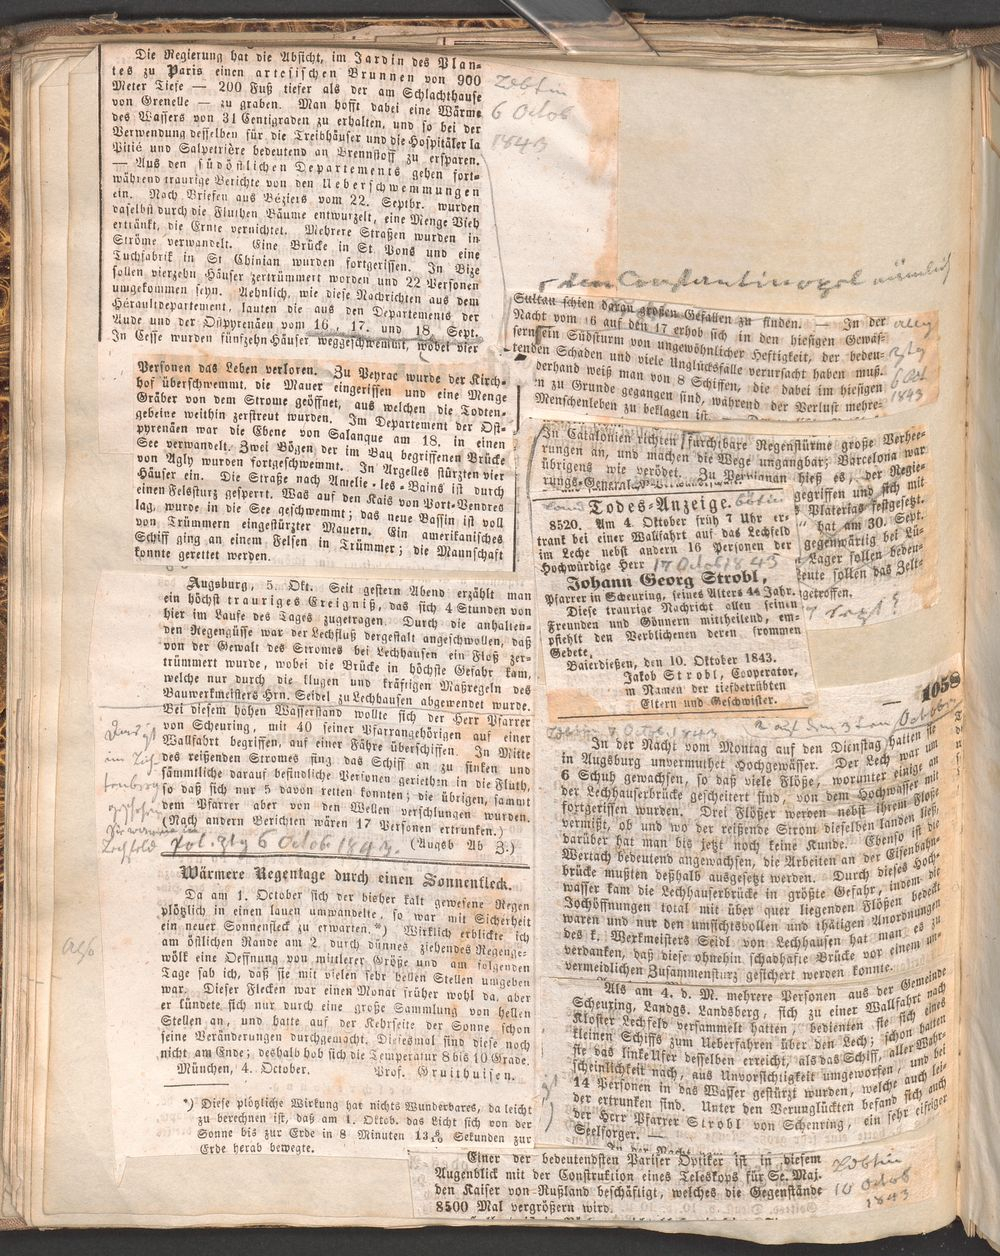 Die Regierung hat die Absicht, im Jardin des Plan-
tes zu Paris einen artesischen Brunnen von 900
Meter Tiefe — 200 Fuß tiefer als der am Schlachthause
von Grenelle — zu graben. Man hofft dabei eine Wärme
des Wassers von 31 Centigraden zu erhalten, und so bei der
Verwendung desselben für die Treibhäuser und die Hospitäler la
Pitié und Salpetrière bedeutend an Brennstoff zu ersparen.
— Aus den südöstlichen Departements gehen fort-
während traurige Berichte von den Ueberschwemmungen
ein. Nach Briefen aus Béziers vom 22. Septbr. wurden
daselbst durch die Fluthen Bäume entwurzelt, eine Menge Vieh
ertränkt, die Ernte vernichtet. Mehrere Straßen wurden in
Ströme verwandelt. Eine Brücke in St. Pons und eine
Tuchfabrik in St Chinian wurden fortgerissen. In Bize
sollen vierzehn Häuser zertrümmert worden und 22 Personen
umgekommen seyn. Aehnlich, wie diese Nachrichten aus dem
Héraultdepartement, lauten die aus den Departements der
Aude und der Ostpyrenäen vom 16., 17. und 18. Sept.
In Cesse wurden fünfzehn Häuser weggeschwemmt, wobei vier
Personen das Leben verloren. Zu Peyrac wurde der Kirch-
hof überschwemmt, die Mauer eingerissen und eine Menge
Gräber von dem Strome geöffnet, aus welchen die Todten-
gebeine weithin zerstreut wurden. Im Departement der Ost-
pyrenäen war die Ebene von Salanque am 18. in einen
See verwandelt. Zwei Bögen der im Bau begriffenen Brücke
von Agly wurden fortgeschwemmt. In Argelles stürzten vier
Häuser ein. Die Straße nach Amelie-les-Bains ist durch
einen Felssturz gesperrt. Was auf den Kais von Port-Vendres
lag, wurde in die See geschwemmt; das neue Bassin ist voll
von Trümmern eingestürzter Mauern. Ein amerikanisches
Schiff ging an einem Felsen in Trümmer; die Mannschaft
konnte gerettet werden.
Augsburg, 5. Okt. Seit gestern Abend erzählt man
ein höchst trauriges Ereigniß, das sich 4 Stunden von
hier im Laufe des Tages zugetragen. Durch die anhalten-
den Regengüsse war der Lechfluß dergestalt angeschwollen, daß
von der Gewalt des Stromes bei Lechhausen ein Floß zer-
trümmert wurde, wobei die Brücke in höchste Gefahr kam,
welche nur durch die klugen und kräftigen Maßregeln des
Bauwerkmeisters Hrn. Seidel zu Lechhausen abgewendet wurde.
Bei diesem hohen Wasserstand wollte sich der Herr Pfarrer
von Scheuring, mit 40 seiner Pfarrangehörigen auf einer
Wallfahrt begriffen, auf einer Fähre überschiffen. In Mitte
des reißenden Stromes fing das Schiff an zu sinken und
sämmtliche darauf befindliche Personen geriethen in die Fluth,
so daß sich nur 5 davon retten konnten; die übrigen, sammt
dem Pfarrer aber von den Wellen verschlungen wurden.
(Nach andern Berichten wären 17 Personen ertrunken.)
(Augsb Ab Z.)
pol. ztg 6 Octob 1843.
Wärmere Regentage durch einen Sonnenfleck.
Da am 1. October sich der bisher kalt gewesene Regen
plötzlich in einen lauen umwandelte, so war mit Sicherheit
ein neuer Sonnenfleck zu erwarten.*) Wirklich erblickte ich
am östlichen Rande am 2. durch dünnes ziehendes Regenge-
wölk eine Oeffnung von mittlerer Größe und am folgenden
Tage sah ich, daß sie mit vielen sehr hellen Stellen umgeben
war. Dieser Flecken war einen Monat früher wohl da, aber
er kündete sich nur durch eine große Sammlung von hellen
Stellen an, und hatte auf der Kehrseite der Sonne schon
seine Veränderungen durchgemacht. Diesesmal sind diese noch
nicht am Ende; deshalb hob sich die Temperatur 8 bis 10 Grade.
München, 4. October. Prof. Gruithuisen.
*) Diese plötzliche Wirkung hat nichts Wunderbares, da leicht
zu berechnen ist, daß am 1. Oktob. das Licht sich von der
Sonne bis zur Erde in 8 Minuten 13,8 Sekunden zur
Erde herab bewegte.
6 Octob
1843
Constantinopel nämlich
Sultan schien daran großen Gefallen zu finden. — In der
Nacht vom 16 auf den 17 erhob sich in den hiesigen Gewäs-
sern ein Südsturm von ungewöhnlicher Heftigkeit, der bedeu-
tenden Schaden und viele Unglücksfälle verursacht haben muß.
derhand weiß man von 8 Schiffen, die dabei im hiesigen
n zu Grunde gegangen sind, während der Verlust mehre-
Menschenleben zu beklagen ist.
Allg
ztg
6 Oct
1843
In Catalonien richten furchtbare Regenstürme große Verhee-
rungen an, und machen die Wege ungangbar; Barcelona war
übrigens wie verödet. Zu Perpignan hieß es, der Regie-
rungs-General
gegriffen und sich mit
Platerias festgesetzt.
hat am 30. Sept.
gegenwärtig bei Lü-
Lager sollen bedeu-
eute sollen das Zelt-
getroffen.
Todes-Anzeige.
8520. Am 4. Oktober früh 7 Uhr er-
trank bei einer Wallfahrt auf das Lechfeld
im Leche nebst andern 16 Personen der
Hochwürdige Herr
17 Octob 1843
Johann Georg Strobl,
Pfarrer in Scheuring, seines Alters 44 Jahr.
Diese traurige Nachricht allen seinen
Freunden und Gönnern mittheilend, em-
pfiehlt den Verblichenen deren frommen
Gebete.
Baierdießen, den 10. Oktober 1843.
Jakob Strobl, Cooperator,
im Namen der tiefbetrübten
Eltern und Geschwister.
1058
7 Octob. 1843
2 auf den 3ten October
In der Nacht vom Montag auf den Dienstag hatten sie
in Augsburg unvermuthet Hochgewässer. Der Lech war um
6 Schuh gewachsen, so daß viele Flöße, worunter einige an
der Lechhauserbrücke gescheitert sind, von dem Hochwasser mit
fortgerissen wurden. Drei Flößer werden nebst ihrem Floße
vermißt, ob und wo der reißende Strom dieselben landen ließ,
darüber hat man bis jetzt noch keine Kunde. Ebenso ist die
Wertach bedeutend angewachsen, die Arbeiten an der Eisenbahn-
brücke mußten deßhalb ausgesetzt werden. Durch dieses Hoch-
wasser kam die Lechhauserbrücke in größte Gefahr, indem die
Jochöffnungen total mit über quer liegenden Flößen bedeckt
waren und nur den umsichtsvollen und thätigen Anordnungen
des k. Werkmeisters Seidl von Lechhausen hat man es zu
verdanken, daß diese ohnehin schadhafte Brücke vor einem un-
vermeidlichen Zusammensturz gesichert werden konnte.
Als am 4. d. M. mehrere Personen aus der Gemeinde
Scheuring, Landgs. Landsberg, sich zu einer Wallfahrt nach
Kloster Lechfeld versammelt hatten, bedienten sie sich eines
kleinen Schiffs zum Ueberfahren über den Lech; schon hatten
sie das linke Ufer desselben erreicht, als das Schiff, aller Wahr-
scheinlichkeit nach, aus Unvorsichtigkeit umgeworfen, und bei
14 Personen in das Wasser gestürzt wurden, welche auch lei-
der ertrunken sind. Unter den Verunglückten befand sich auch
der Herr Pfarrer Strobl von Scheuring, ein sehr eifriger
Seelsorger. —
Einer der bedeutendsten Pariser Optiker ist in diesem
Augenblick mit der Construktion eines Teleskops für Se. Maj.
den Kaiser von Rußland beschäftigt, welches die Gegenstände
8500 Mal vergrößern wird.
10 Octob
1843